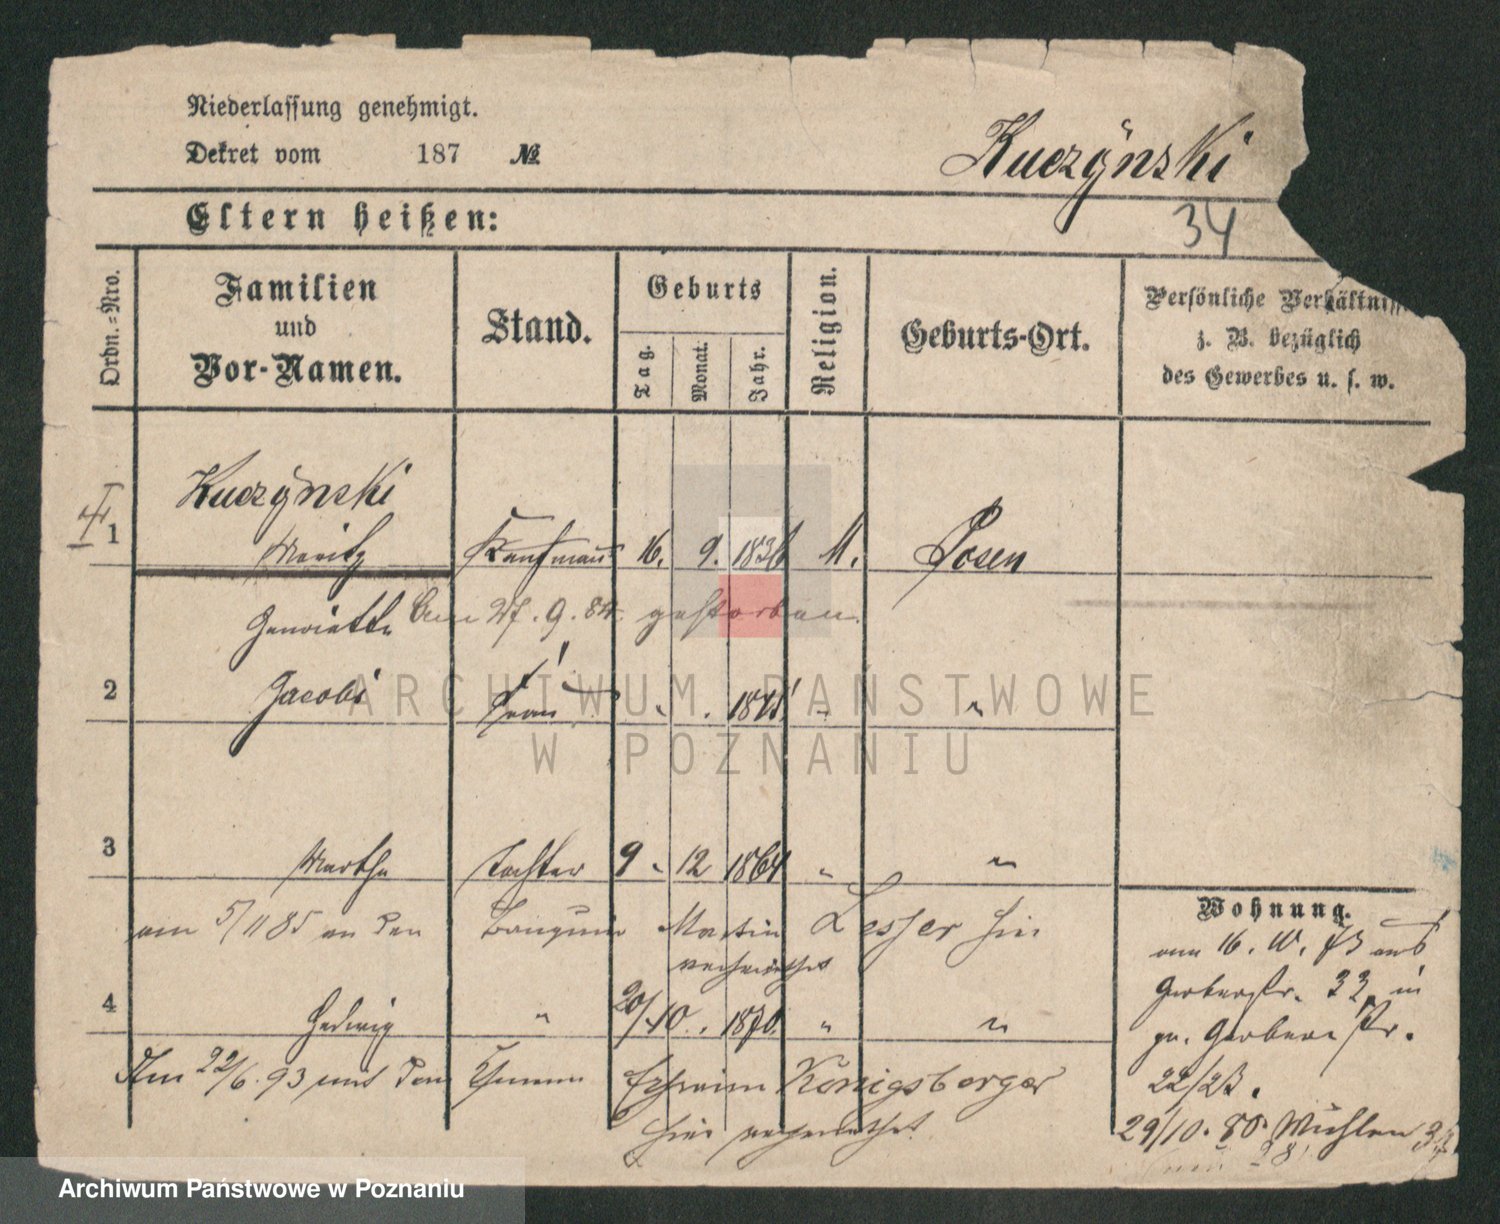 Niederlassung genehmigt.
Dekret vom 187 №
Kuczÿnski
34
Eltern heißen:
Ordn.-Nro.
Familien
und
Vor-Namen.
Stand.
Geburts
Tag.
Monat.
Jahr.
Religion.
Geburts-Ort.
Persönliche Verhältniss
z. B. bezüglich
des Gewerbes u. s. w.
Kuczÿnski
1 Moritz Kaufmann 16. 9. 1836 M. Posen
Henriette am 27. 9. 84 gestorben
2 Jacobi Frau " 
3 Martha Tochter 9 12 1864 " "
am 5/11 85 an den Banquier Martin Lesser hier
verheirathet
4 Hedwig " 20/ 10. 1870. " "
Am 22/6. 93 mit dem Ephraim Königsberger
hier verheirathet
Wohnung.
am 16. 73 aus
Gerberstr. 33 in
Gerberstr.
22/23.
29/10. 80. Mühlen
ARCHIWUM PAŃSTWOWE
W POZNANIU
Archiwum Państwowe w Poznaniu